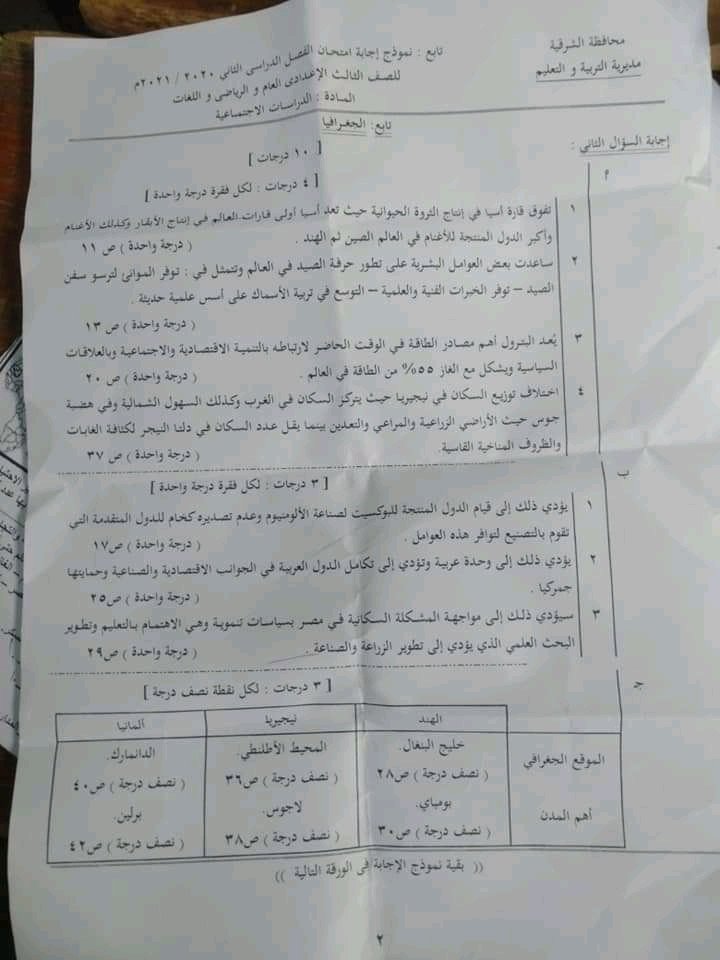 محافظة الشرقية
مديرية التربية و التعليم
تابع : نموذج إجابة امتحان الفصل الدراسى الثانى ٢٠٢٠ / ٢٠٢١م
للصف الثالث الإعدادى العام و الرياضى و اللغات
المادة : الدراسات الاجتماعية
تابع: الجغرافيا
إجابة السؤال الثانى :
[ ١٠ درجات ]
م [ ٤ درجات : لكل فقرة درجة واحدة ]
١ تفوق قارة آسيا في إنتاج الثروة الحيوانية حيث تعد آسيا أولى قارات العالم في إنتاج الأبقار وكذلك الأغنام
وأكبر الدول المنتجة للأغنام في العالم الصين ثم الهند . ( درجة واحدة ) ص ١١
٢ ساعدت بعض العوامل البشرية على تطور حرفة الصيد في العالم وتتمثل في : توفر الموانئ لترسو سفن
الصيد – توفر الخبرات الفنية والعلمية – التوسع في تربية الأسماك على أسس علمية حديثة .
( درجة واحدة ) ص ١٣
٣ يُعد البترول أهم مصادر الطاقة في الوقت الحاضر لارتباطه بالتنمية الاقتصادية والاجتماعية وبالعلاقات
السياسية ويشكل مع الغاز ٥٥% من الطاقة في العالم . ( درجة واحدة ) ص ٢٠
٤ اختلاف توزيع السكان في نيجيريا حيث يتركز السكان في الغرب وكذلك السهول الشمالية وفي هضبة
جوس حيث الأراضي الزراعية والمراعي والتعدين بينما يقل عدد السكان في دلتا النيجر لكثافة الغابات
والظروف المناخية القاسية. ( درجة واحدة ) ص ٣٧
ب [ ٣ درجات : لكل فقرة درجة واحدة ]
١ يؤدي ذلك إلى قيام الدول المنتجة للبوكسيت لصناعة الألومنيوم وعدم تصديره كخام للدول المتقدمة التي
تقوم بالتصنيع لتوافر هذه العوامل . ( درجة واحدة ) ص١٧
٢ يؤدي ذلك إلى وحدة عربية وتؤدي إلى تكامل الدول العربية في الجوانب الاقتصادية والصناعية وحمايتها
جمركيا . ( درجة واحدة ) ص٢٥
٣ سيؤدي ذلك إلى مواجهة المشكلة السكانية في مصر بسياسات تنموية وهي الاهتمام بالتعليم وتطوير
البحث العلمي الذي يؤدي إلى تطوير الزراعة والصناعة . ( درجة واحدة ) ص٢٩
جـ [ ٣ درجات : لكل نقطة نصف درجة ]
الهند نيجيريا ألمانيا
الموقع الجغرافي خليج البنغال. المحيط الأطلنطي. الدانمارك.
( نصف درجة ) ص٢٨ ( نصف درجة ) ص٣٦ ( نصف درجة ) ص٤٠
أهم المدن بومباي. لاجوس. برلين.
( نصف درجة ) ص٣٠ ( نصف درجة ) ص٣٨ ( نصف درجة ) ص٤٢
(( بقية نموذج الإجابة فى الورقة التالية ))
٢